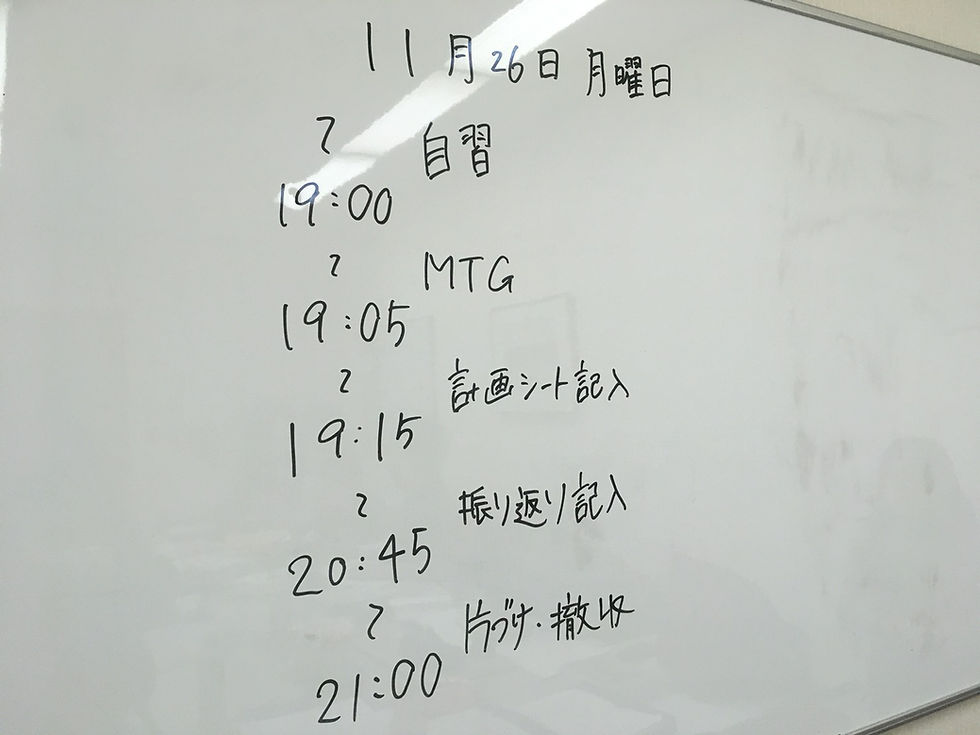 11月26日 月曜日
〜 自習
19:00
〜 MTG
19:05
〜 計画シート記入
19:15
〜 振り返り記入
20:45
〜 片づけ・撤収
21:00